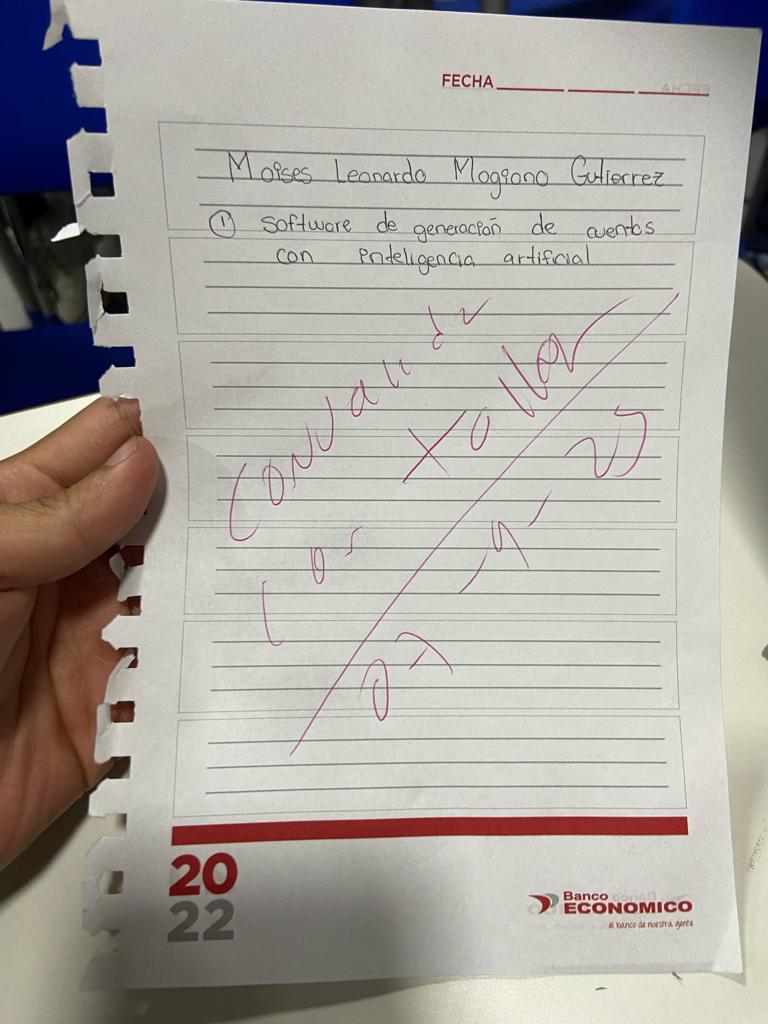 FECHA
Moises Leonardo Mogiono Gutierrez
① Software de generación de cuentos
con inteligencia artificial
Convalida
Taller
07-9-23
20
22
Banco
ECONOMICO
el banco de nuestra gente